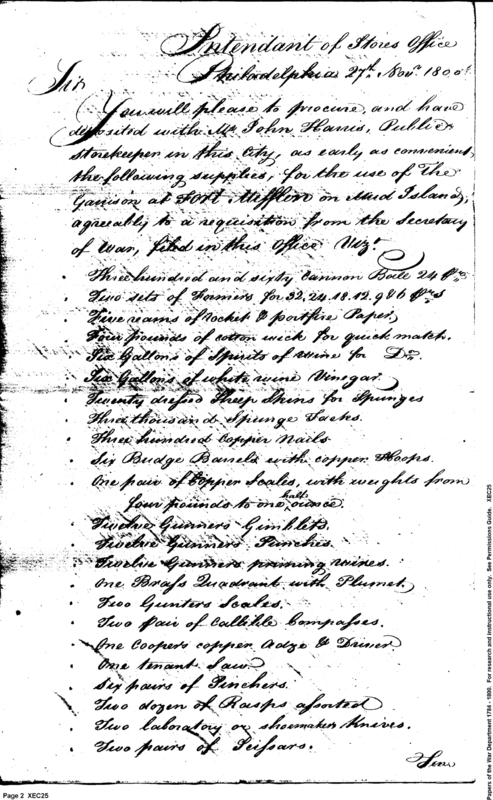 Intendant of Stores Office
Philadelphia 27th. Novr. 1800
Sir
You will please to procure, and have
deposited with Mr. John Harris, Public
Storekeeper in this City, as early as convenient,
the following supplies, for the use of The
Garrison at Fort Mifflin on Mud Island,
agreeably to a requisition from the Secretary
of War, filed in this Office Vizt.
Three hundred and sixty Cannon 24 Prs
Two sets of Formers for 32, 24, 18, 12, 9 & 6 Prs
Five reams of rocket & portfire Paper,
Four pounds of cotton wick for quick match.
Six Gallons of Spirits of wine for Do.
Six Gallons of white wine Vinegar
Twenty dressed Sheep Skins for Spunges
Three thousand Spunge Tacks.
Three hundred Copper Nails
Six Budge Barrels with copper Hoops.
One pair of Copper Scales, with weights from
four pounds to one half ounce.
Twelve Gunners Gimblets.
Twelve Gunners Punches
Twelve Gunners priming wires.
One Brass Quadrant with Plumet
Two Gunters Scales.
Two Pair of Callible Compasses.
One Coopers copper Adze & Driver
One tenant Saw
Six pairs of Pinchers.
Two dozen of Rasps assorted
Two laboratory or shoemakers Knives.
Two pairs of Scissars.
Page 2 XEC25
Papers of the War Department 1784 - 1800. For research and instructional use only. See Permissions Guide. XEC25